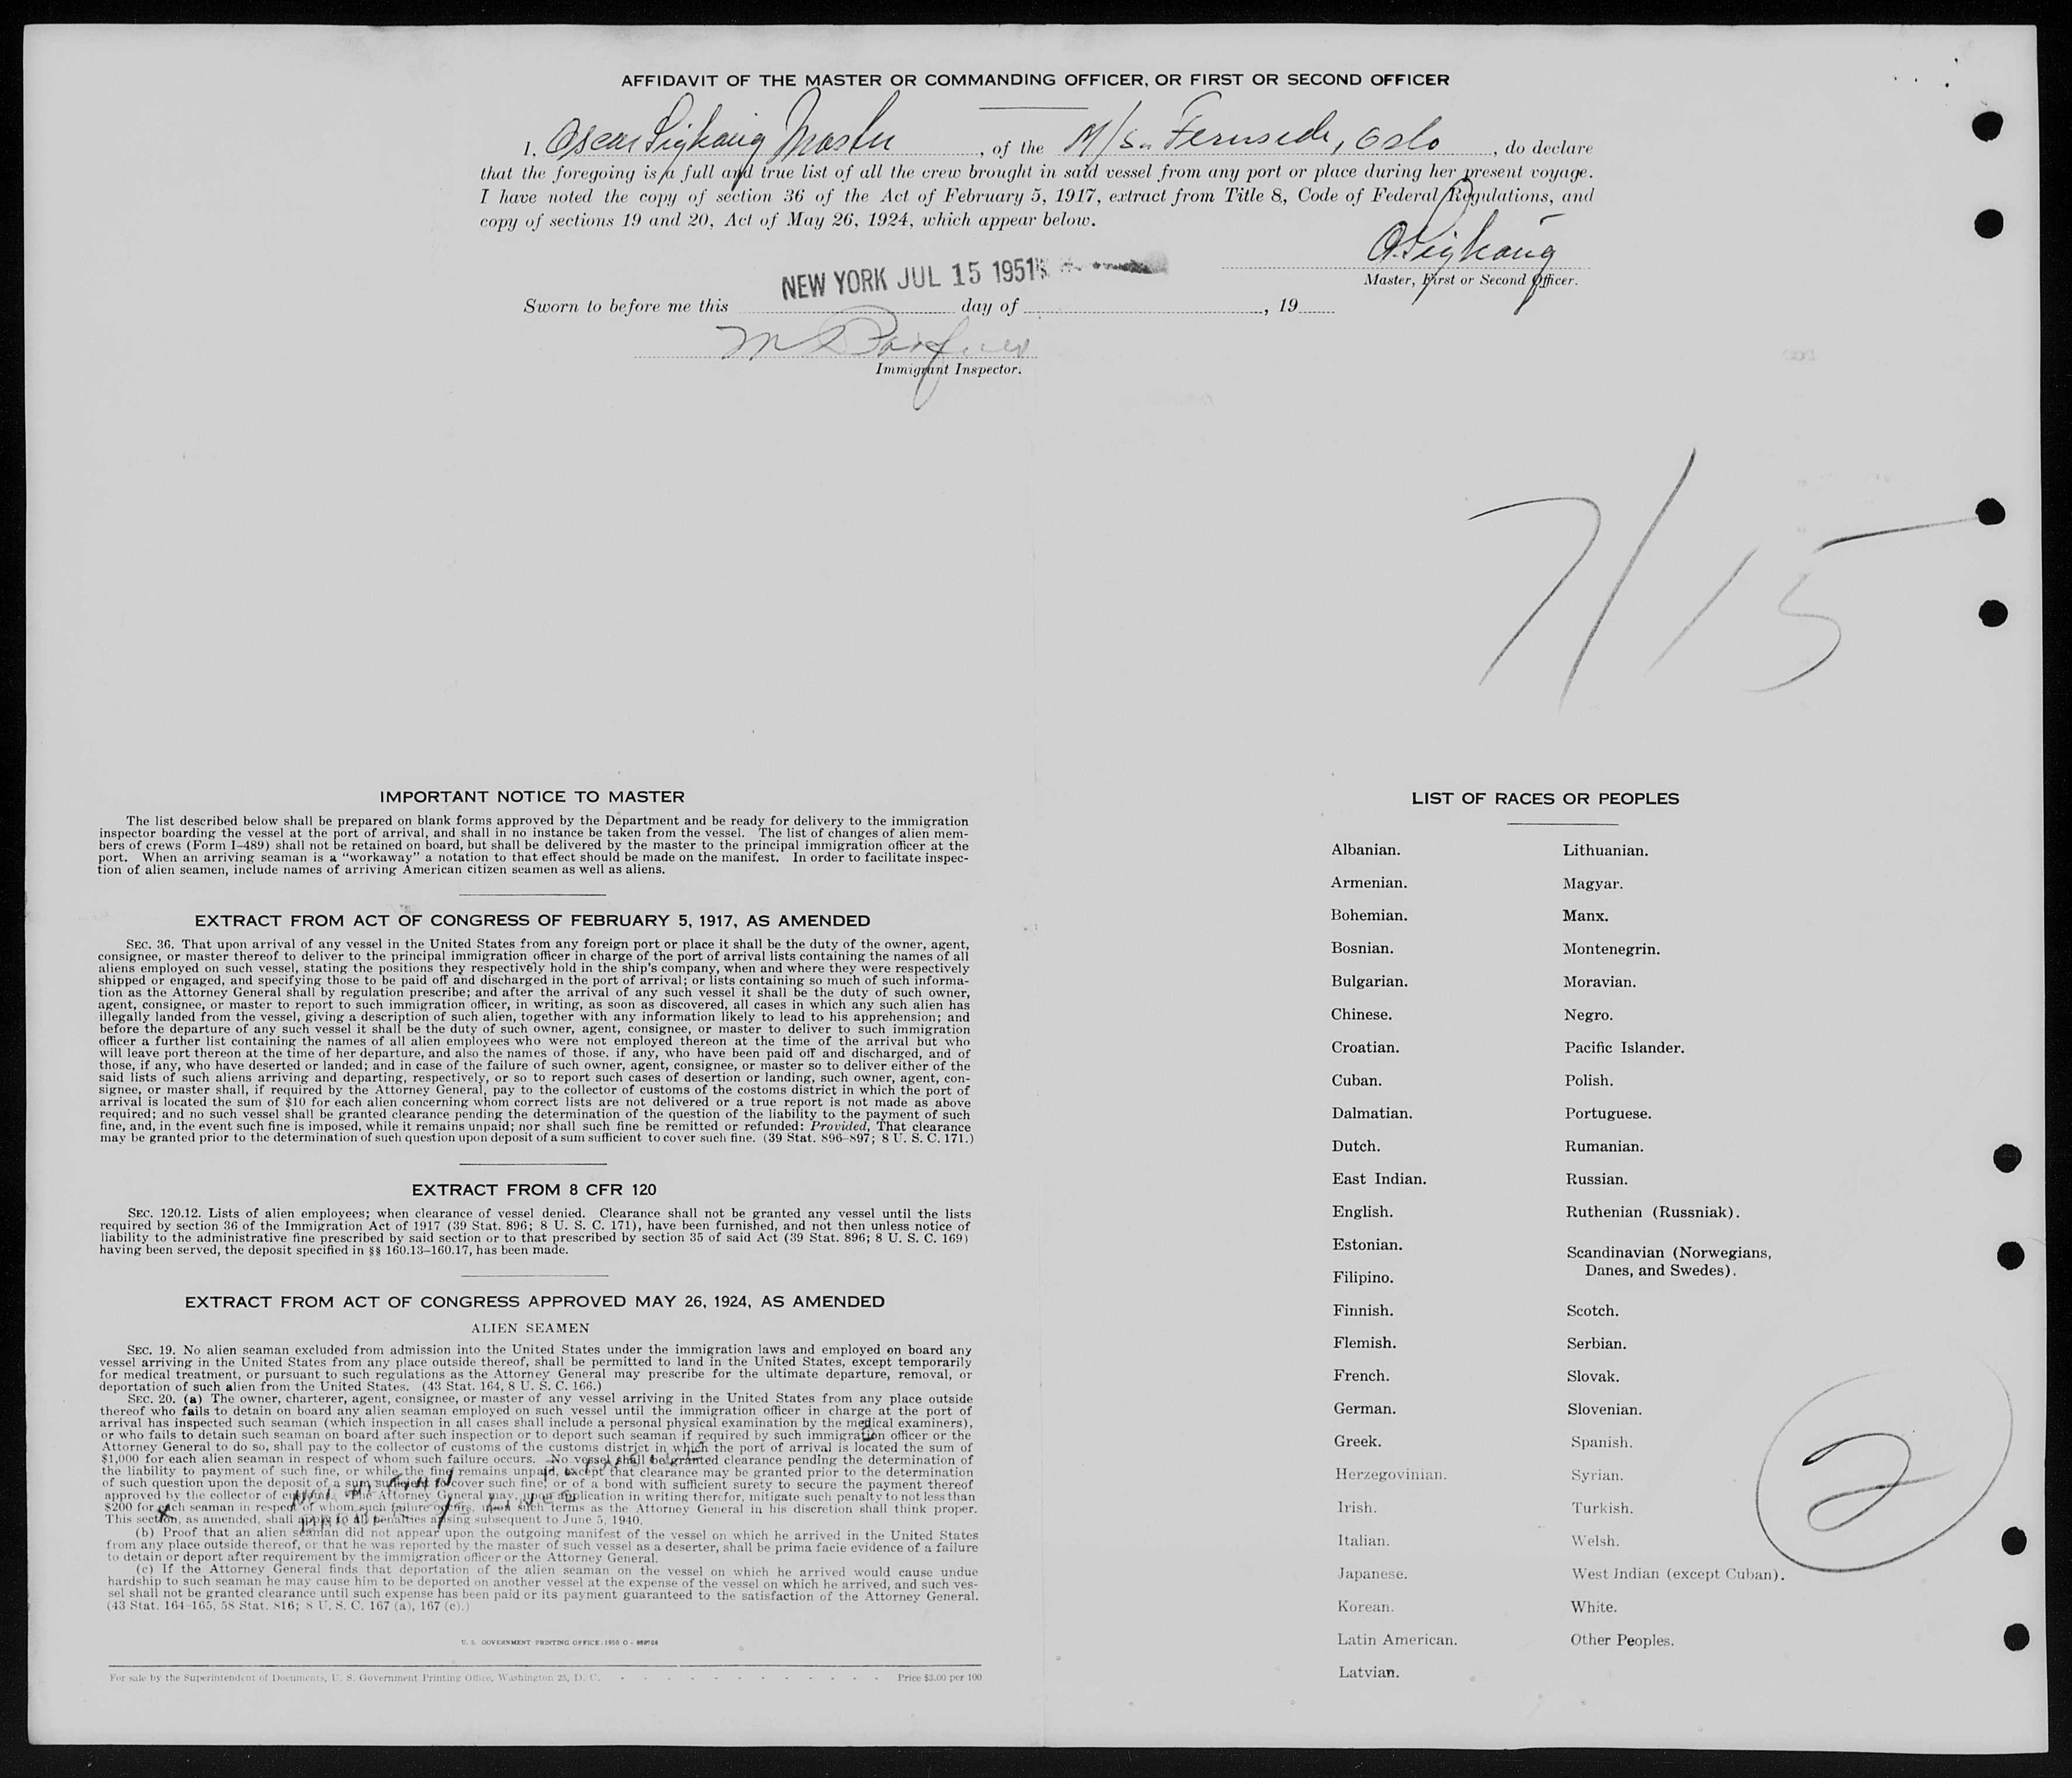 AFFIDAVIT OF THE MASTER OR COMMANDING OFFICER, OR FIRST OR SECOND OFFICER
I, Oscar Sighaug Master, of the M/S. Fernside, Oslo, do declare
that the foregoing is a full and true list of all the crew brought in said vessel from any port or place during her present voyage.
I have noted the copy of section 36 of the Act of February 5, 1917, extract from Title 8, Code of Federal Regulations, and
copy of sections 19 and 20, Act of May 26, 1924, which appear below.
Master, First or Second Officer.
NEW YORK JUL 15 1951
Sworn to before me this day of , 19
Immigrant Inspector.
7/15
IMPORTANT NOTICE TO MASTER
The list described below shall be prepared on blank forms approved by the Department and be ready for delivery to the immigration
inspector boarding the vessel at the port of arrival, and shall in no instance be taken from the vessel. The list of changes of alien mem-
bers of crews (Form I–489) shall not be retained on board, but shall be delivered by the master to the principal immigration officer at the
port. When an arriving seaman is a "workaway" a notation to that effect should be made on the manifest. In order to facilitate inspec-
tion of alien seamen, include names of arriving American citizen seamen as well as aliens.
EXTRACT FROM ACT OF CONGRESS OF FEBRUARY 5, 1917, AS AMENDED
SEC. 36. That upon arrival of any vessel in the United States from any foreign port or place it shall be the duty of the owner, agent,
consignee, or master thereof to deliver to the principal immigration officer in charge of the port of arrival lists containing the names of all
aliens employed on such vessel, stating the positions they respectively hold in the ship's company, when and where they were respectively
shipped or engaged, and specifying those to be paid off and discharged in the port of arrival; or lists containing so much of such informa-
tion as the Attorney General shall by regulation prescribe; and after the arrival of any such vessel it shall be the duty of such owner,
agent, consignee, or master to report to such immigration officer, in writing, as soon as discovered, all cases in which any such alien has
illegally landed from the vessel, giving a description of such alien, together with any information likely to lead to his apprehension; and
before the departure of any such vessel it shall be the duty of such owner, agent, consignee, or master to deliver to such immigration
officer a further list containing the names of all alien employees who were not employed thereon at the time of the arrival but who
will leave port thereon at the time of her departure, and also the names of those, if any, who have been paid off and discharged, and of
those, if any, who have deserted or landed; and in case of the failure of such owner, agent, consignee, or master so to deliver either of the
said lists of such aliens arriving and departing, respectively, or so to report such cases of desertion or landing, such owner, agent, con-
signee, or master shall, if required by the Attorney General, pay to the collector of customs of the costoms district in which the port of
arrival is located the sum of $10 for each alien concerning whom correct lists are not delivered or a true report is not made as above
required; and no such vessel shall be granted clearance pending the determination of the question of the liability to the payment of such
fine, and, in the event such fine is imposed, while it remains unpaid; nor shall such fine be remitted or refunded: Provided, That clearance
may be granted prior to the determination of such question upon deposit of a sum sufficient to cover such fine. (39 Stat. 896–897; 8 U. S. C. 171.)
EXTRACT FROM 8 CFR 120
SEC. 120.12. Lists of alien employees; when clearance of vessel denied. Clearance shall not be granted any vessel until the lists
required by section 36 of the Immigration Act of 1917 (39 Stat. 896; 8 U. S. C. 171), have been furnished, and not then unless notice of
liability to the administrative fine prescribed by said section or to that prescribed by section 35 of said Act (39 Stat. 896; 8 U. S. C. 169)
having been served, the deposit specified in §§ 160.13–160.17, has been made.
EXTRACT FROM ACT OF CONGRESS APPROVED MAY 26, 1924, AS AMENDED
ALIEN SEAMEN
SEC. 19. No alien seaman excluded from admission into the United States under the immigration laws and employed on board any
vessel arriving in the United States from any place outside thereof, shall be permitted to land in the United States, except temporarily
for medical treatment, or pursuant to such regulations as the Attorney General may prescribe for the ultimate departure, removal, or
deportation of such alien from the United States. (43 Stat. 164, 8 U. S. C. 166.)
SEC. 20. (a) The owner, charterer, agent, consignee, or master of any vessel arriving in the United States from any place outside
thereof who fails to detain on board any alien seaman employed on such vessel until the immigration officer in charge at the port of
arrival has inspected such seaman (which inspection in all cases shall include a personal physical examination by the medical examiners),
or who fails to detain such seaman on board after such inspection or to deport such seaman if required by such immigration officer or the
Attorney General to do so, shall pay to the collector of customs of the customs district in which the port of arrival is located the sum of
$1,000 for each alien seaman in respect of whom such failure occurs. No vessel shall be granted clearance pending the determination of
the liability to payment of such fine, or while the fine remains unpaid, except that clearance may be granted prior to the determination
of such question upon the deposit of a sum sufficient to cover such fine, or of a bond with sufficient surety to secure the payment thereof
approved by the collector of customs. The Attorney General may, upon application in writing therefor, mitigate such penalty to not less than
$200 for each seaman in respect of whom such failure occurs, upon such terms as the Attorney General in his discretion shall think proper.
This section, as amended, shall apply to all penalties arising subsequent to June 5, 1940.
(b) Proof that an alien seaman did not appear upon the outgoing manifest of the vessel on which he arrived in the United States
from any place outside thereof, or that he was reported by the master of such vessel as a deserter, shall be prima facie evidence of a failure
to detain or deport after requirement by the immigration officer or the Attorney General.
(c) If the Attorney General finds that deportation of the alien seaman on the vessel on which he arrived would cause undue
hardship to such seaman he may cause him to be deported on another vessel at the expense of the vessel on which he arrived, and such ves-
sel shall not be granted clearance until such expense has been paid or its payment guaranteed to the satisfaction of the Attorney General.
(43 Stat. 164–165, 58 Stat. 816; 8 U. S. C. 167 (a), 167 (c).)
U. S. GOVERNMENT PRINTING OFFICE: 1950 O
For sale by the Superintendent of Documents, U. S. Government Printing Office, Washington 25, D. C. - - - - - - - - - - - - Price $3.00 per 100
LIST OF RACES OR PEOPLES
Albanian.
Armenian.
Bohemian.
Bosnian.
Bulgarian.
Chinese.
Croatian.
Cuban.
Dalmatian.
Dutch.
East Indian.
English.
Estonian.
Filipino.
Finnish.
Flemish.
French.
German.
Greek.
Herzegovinian.
Irish.
Italian.
Japanese.
Korean.
Latin American.
Latvian.
Lithuanian.
Magyar.
Manx.
Montenegrin.
Moravian.
Negro.
Pacific Islander.
Polish.
Portuguese.
Rumanian.
Russian.
Ruthenian (Russniak).
Scandinavian (Norwegians,
Danes, and Swedes).
Scotch.
Serbian.
Slovak.
Slovenian.
Spanish.
Syrian.
Turkish.
Welsh.
West Indian (except Cuban).
White.
Other Peoples.
2